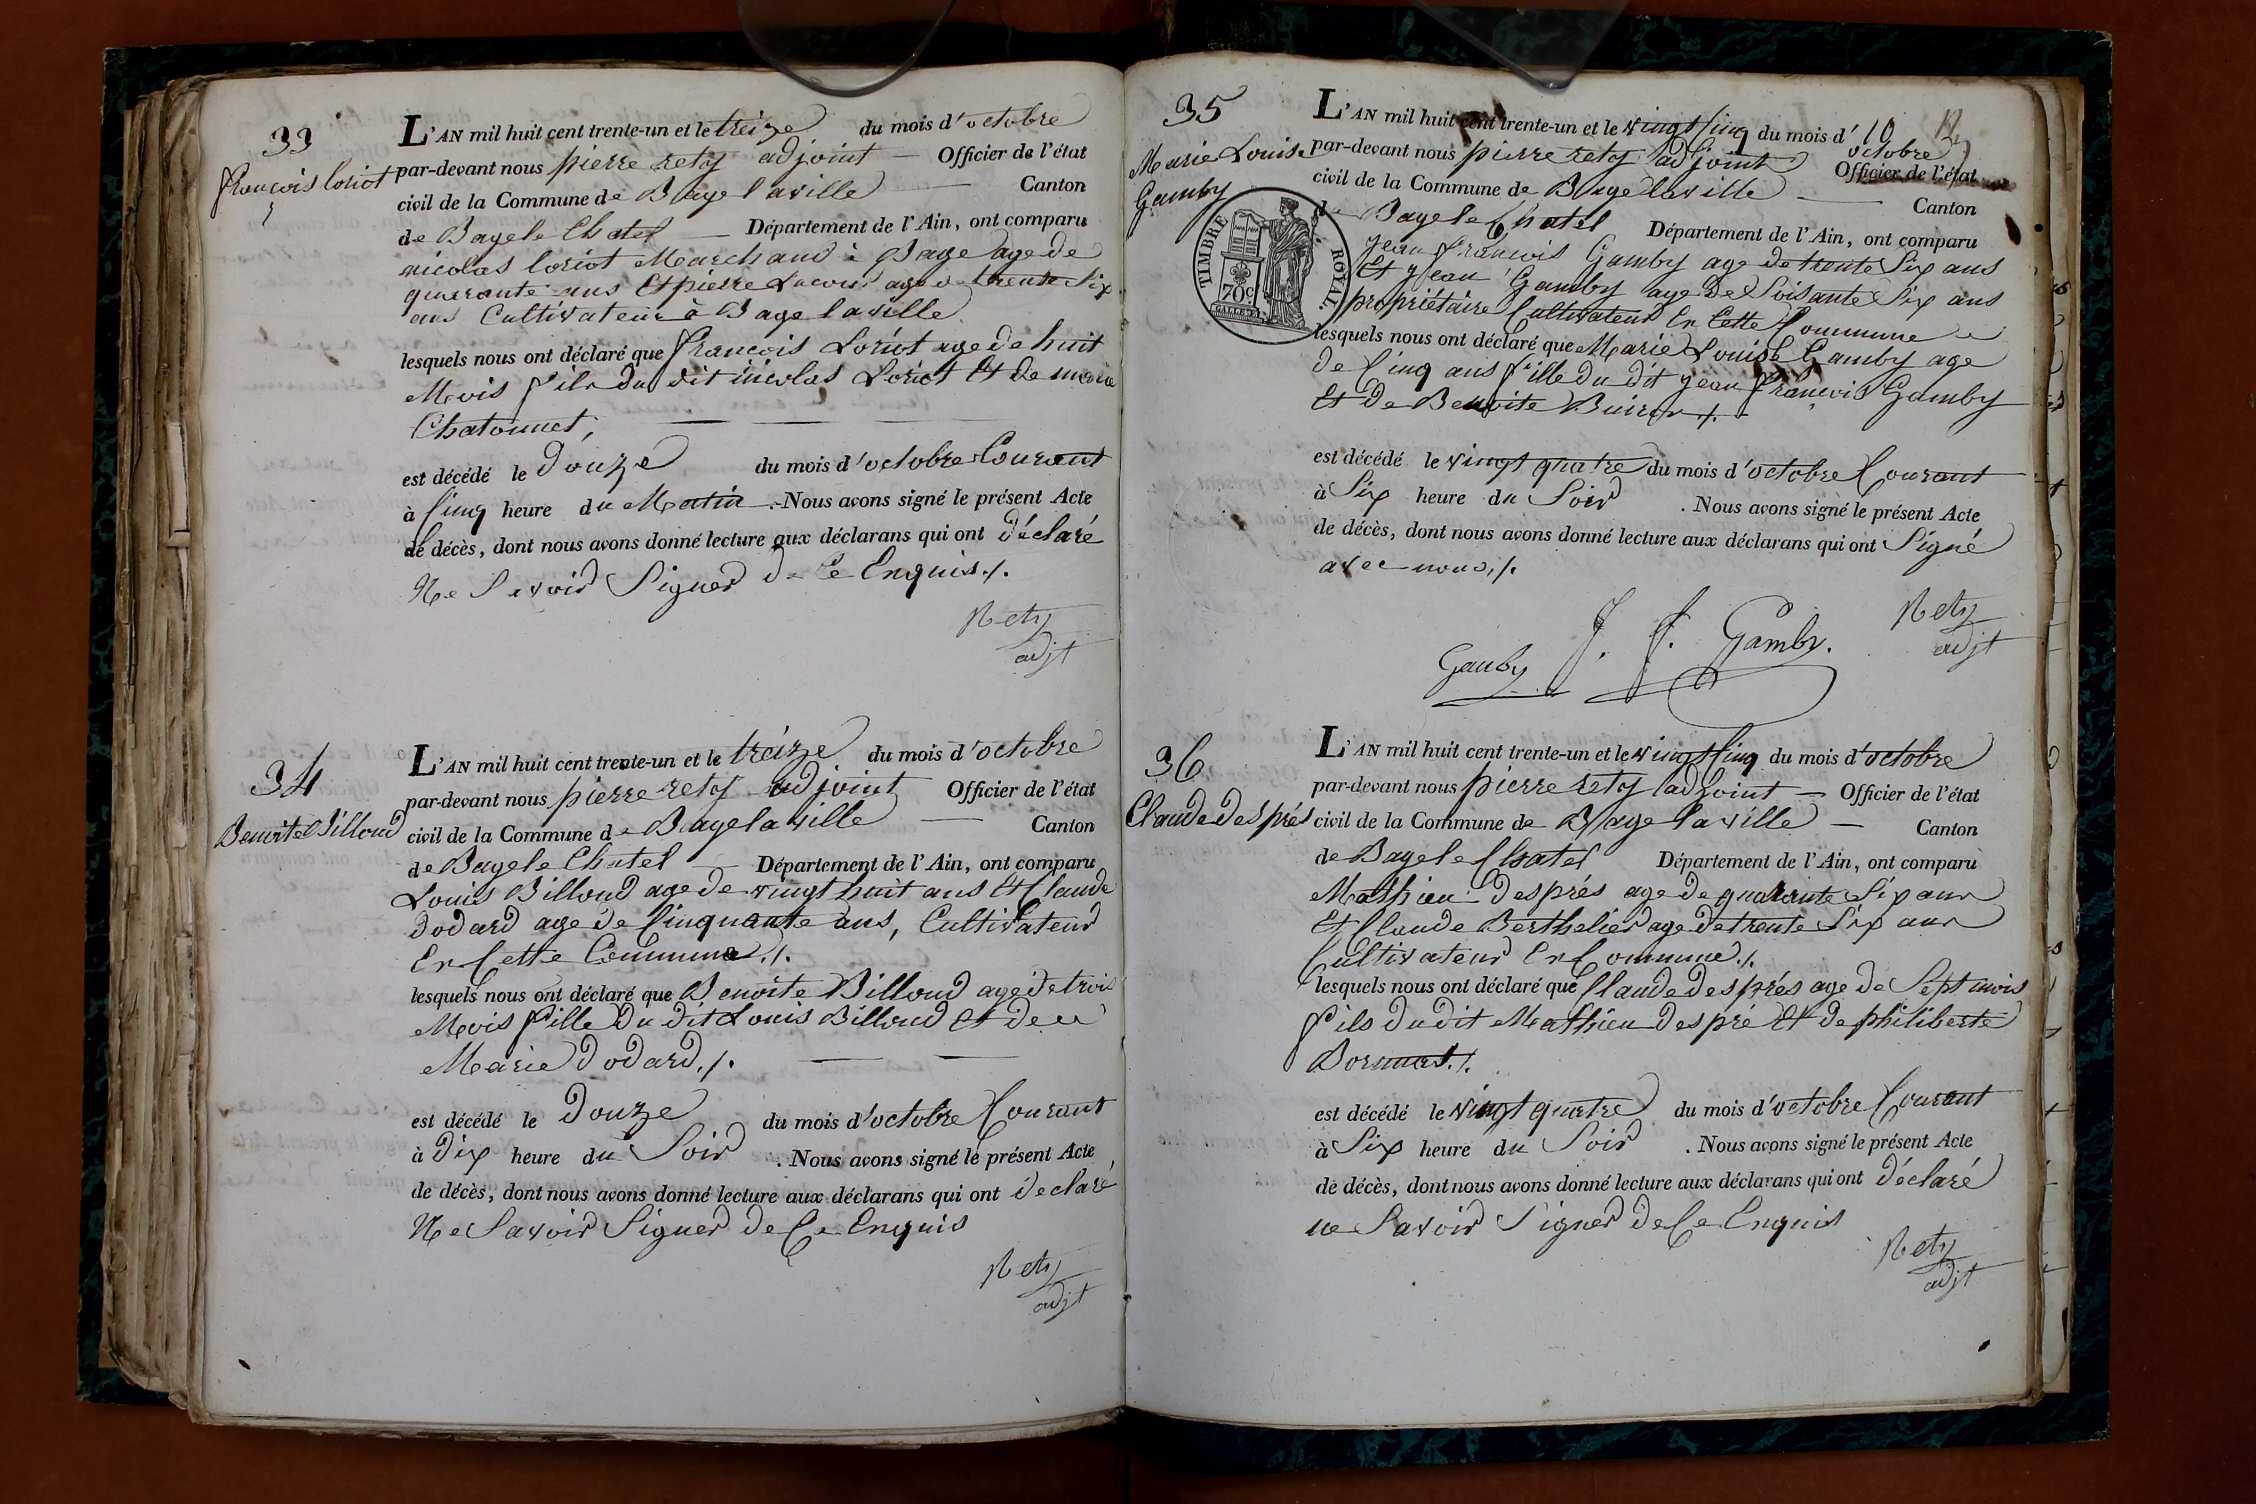 33
françois loriot
L'AN mil huit cent trente-un et le treize du mois d'octobre
par-devant nous pierre rety adjoint Officier de l'état
civil de la Commune de Bage laville Canton
de Bagele Chatel Département de l'Ain, ont comparu
nicolas loriot Marchand à Bage age de
quarante ans Et pierre age de trente Six
ans Cultivateur à Bage laville
lesquels nous ont déclaré que françois Loriot age de huit
Mois fils du dit nicolas Loriot Et de marie
Chatonnet,
est décédé le douze du mois d'octobre Courant
à Cinq heure du Matin. Nous avons signé le présent Acte
de décès, dont nous avons donné lecture aux déclarans qui ont déclaré
Ne Savoir Signer de Ce Enquis./.
Rety
adjt
34
Benoite Billoud
L'AN mil huit cent trente-un et le treize du mois d'octobre
par-devant nous pierre rety adjoint Officier de l'état
civil de la Commune de Bagelaville Canton
de Bagele Chatel Département de l'Ain, ont comparu
Louis Billoud age de vingt huit ans Et Claude
Dodard age de Cinquante ans, Cultivateur
En Cette Commune./.
lesquels nous ont déclaré que Benoite Billoud age de trois
Mois fille du dit Louis Billoud Et de
Marie Dodard./.
est décédé le Douze du mois d'octobre Courant
à dix heure du Soir. Nous avons signé le présent Acte
de décès, dont nous avons donné lecture aux déclarans qui ont déclaré
Ne Savoir Signer de Ce Enquis
Rety
adjt
35
Marie Louise
Gamby
TIMBRE ROYAL
70c
10
L'AN mil huit cent trente-un et le vingt Cinq du mois d'octobre
par-devant nous pierre rety adjoint Officier de l'état
civil de la Commune de Bagelaville Canton
de Bagele Chatel Département de l'Ain, ont comparu
Jean françois Gamby age de trente Six ans
Et Jean Gamby age de Soisante Six ans
propriétaire Cultivateur En Cette Commune
lesquels nous ont déclaré que Marie Louise Gamby age
de Cinq ans fille du dit Jean françois Gamby
Et de Benoite Buiron./.
est décédé le vingt quatre du mois d'octobre Courant
à Six heure du Soir. Nous avons signé le présent Acte
de décès, dont nous avons donné lecture aux déclarans qui ont Signé
avec nous./.
Gamby J. F. Gamby.
Rety
adjt
36
Claude Després
L'AN mil huit cent trente-un et le vingt Cinq du mois d'octobre
par-devant nous pierre rety adjoint Officier de l'état
civil de la Commune de Bage laville Canton
de Bagele Chatel Département de l'Ain, ont comparu
Mathieu Després age de quarante Six ans
Et Claude Berthelier age de trente Six ans
Cultivateur En Commune./.
lesquels nous ont déclaré que Claude Després age de Sept mois
fils du dit Mathieu Despré Et de philiberte
est décédé le vingt quatre du mois d'octobre Courant
à Six heure du Soir. Nous avons signé le présent Acte
de décès, dont nous avons donné lecture aux déclarans qui ont déclaré
ne Savoir Signer de Ce Enquis
Rety
adjt